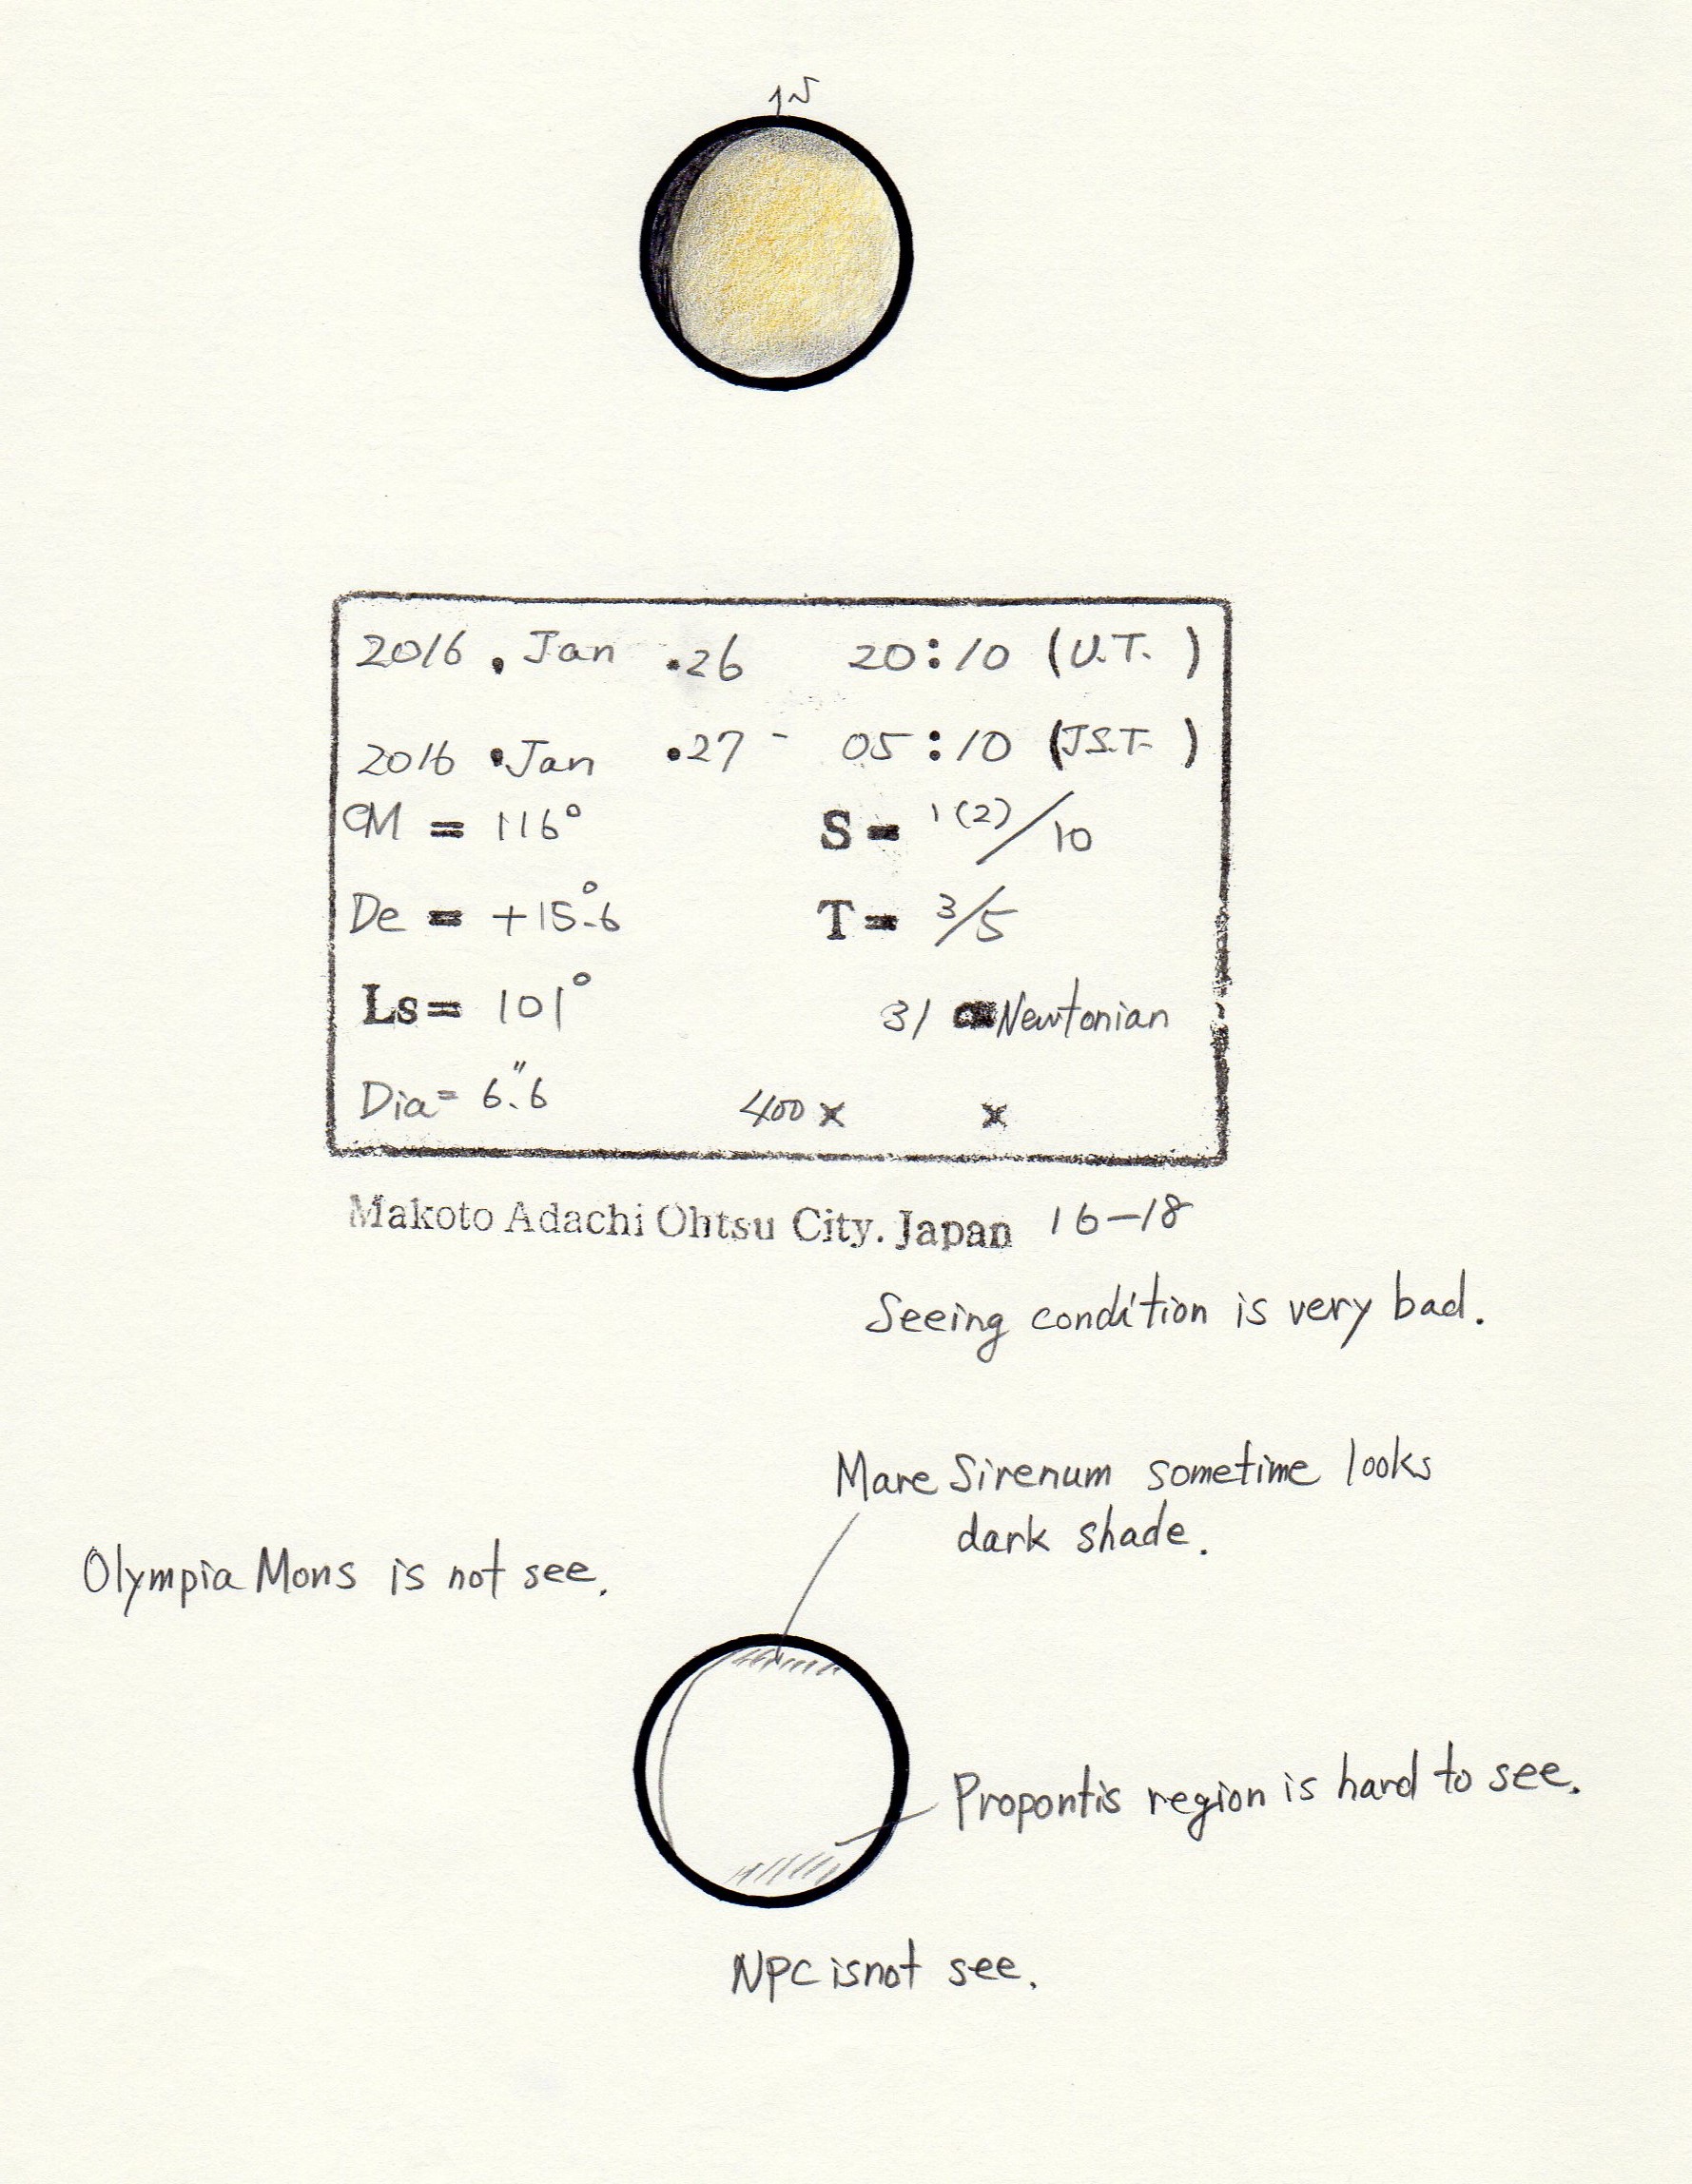 2016 . Jan . 26 20:10 (U.T. )
2016 . Jan . 27 05:10 (J.S.T. )
CM = 116° S = 1(2)/10
De = +15.°6 T = 3/5
Ls = 101° 31 Newtonian
Dia = 6."6 400 x x
Makoto Adachi Ohtsu City. Japan 16-18
Seeing condition is very bad.
Mare Sirenum sometime looks
dark shade.
Olympia Mons is not see.
Propontis region is hard to see.
NPC is not see.